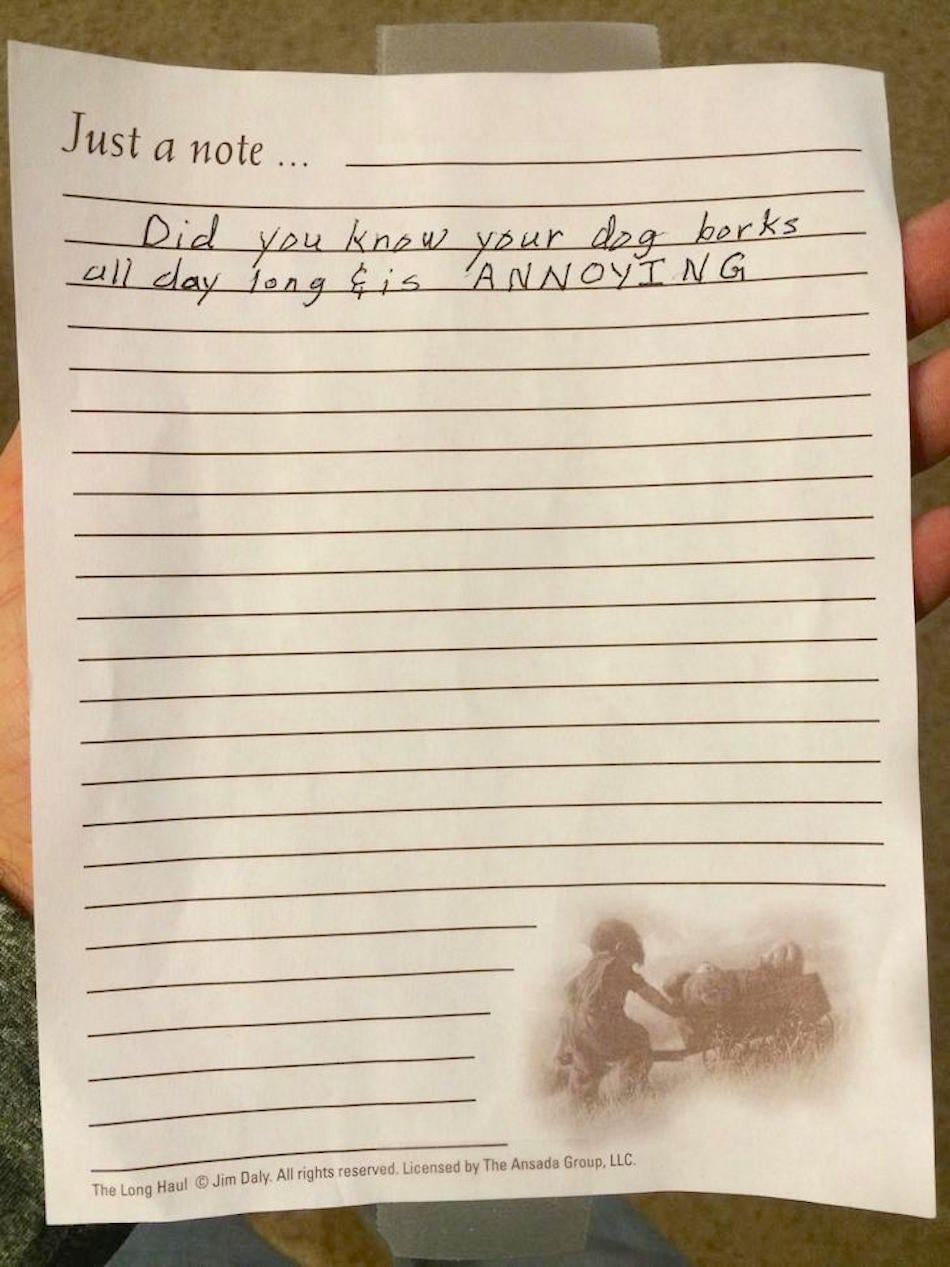 Just a note ...
Did you know your dog borks
all day long & is ANNOYING
The Long Haul © Jim Daly. All rights reserved. Licensed by The Ansada Group, LLC.